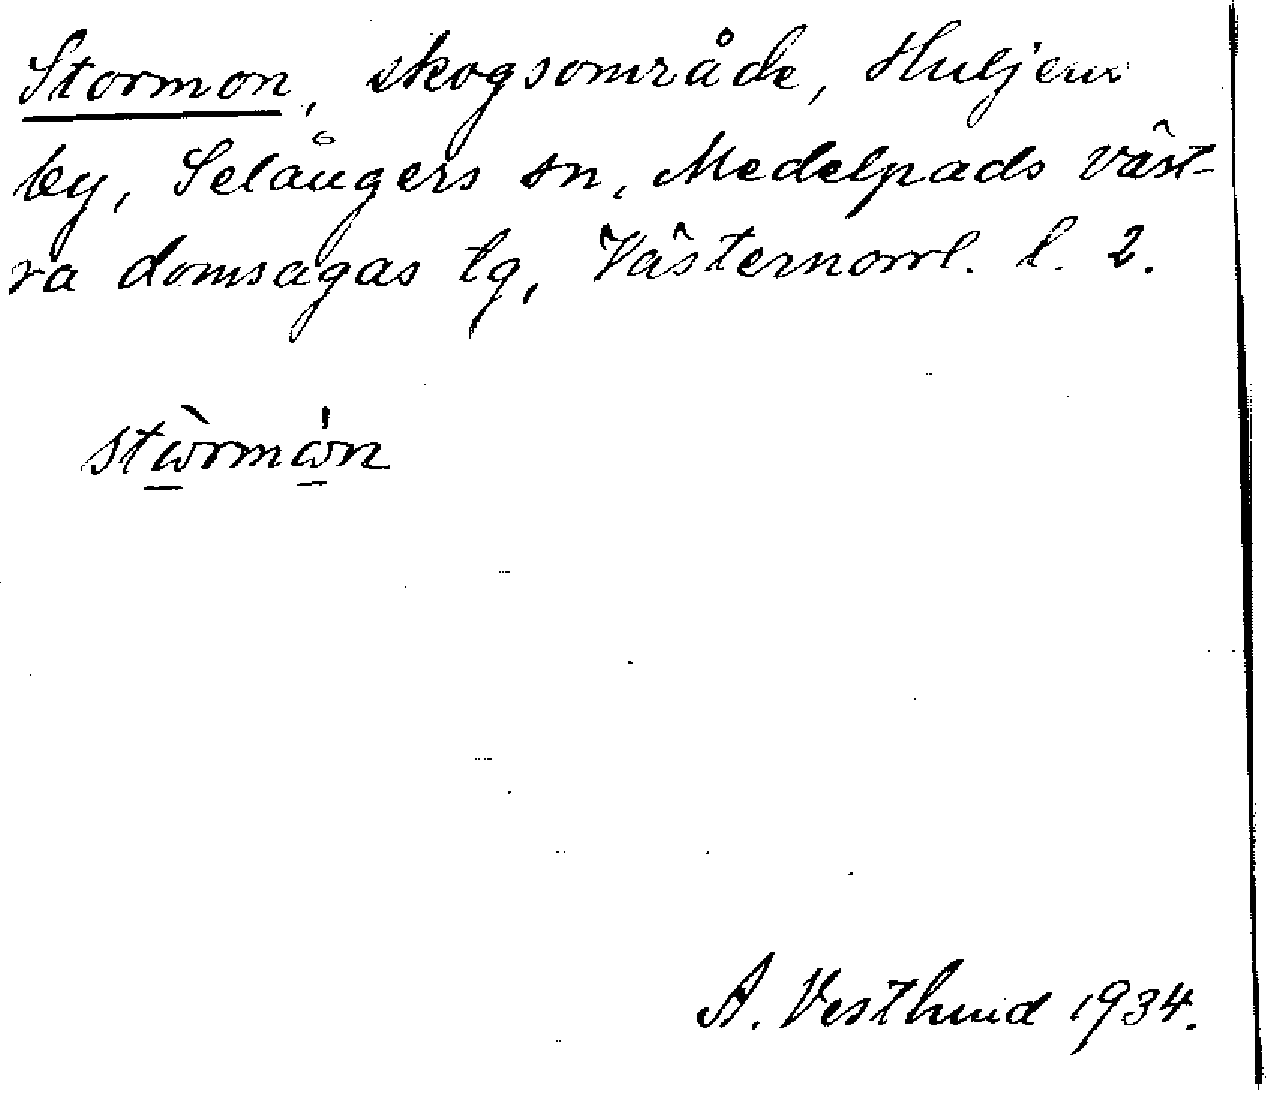 Stormon, skogsområde, Huljens
by, Selångers sn, Medelpads väst-
ra domsagas tg, Västernorrl. l. 2.
stὼ̲rmώ̲n
A. Vestlund 1934.